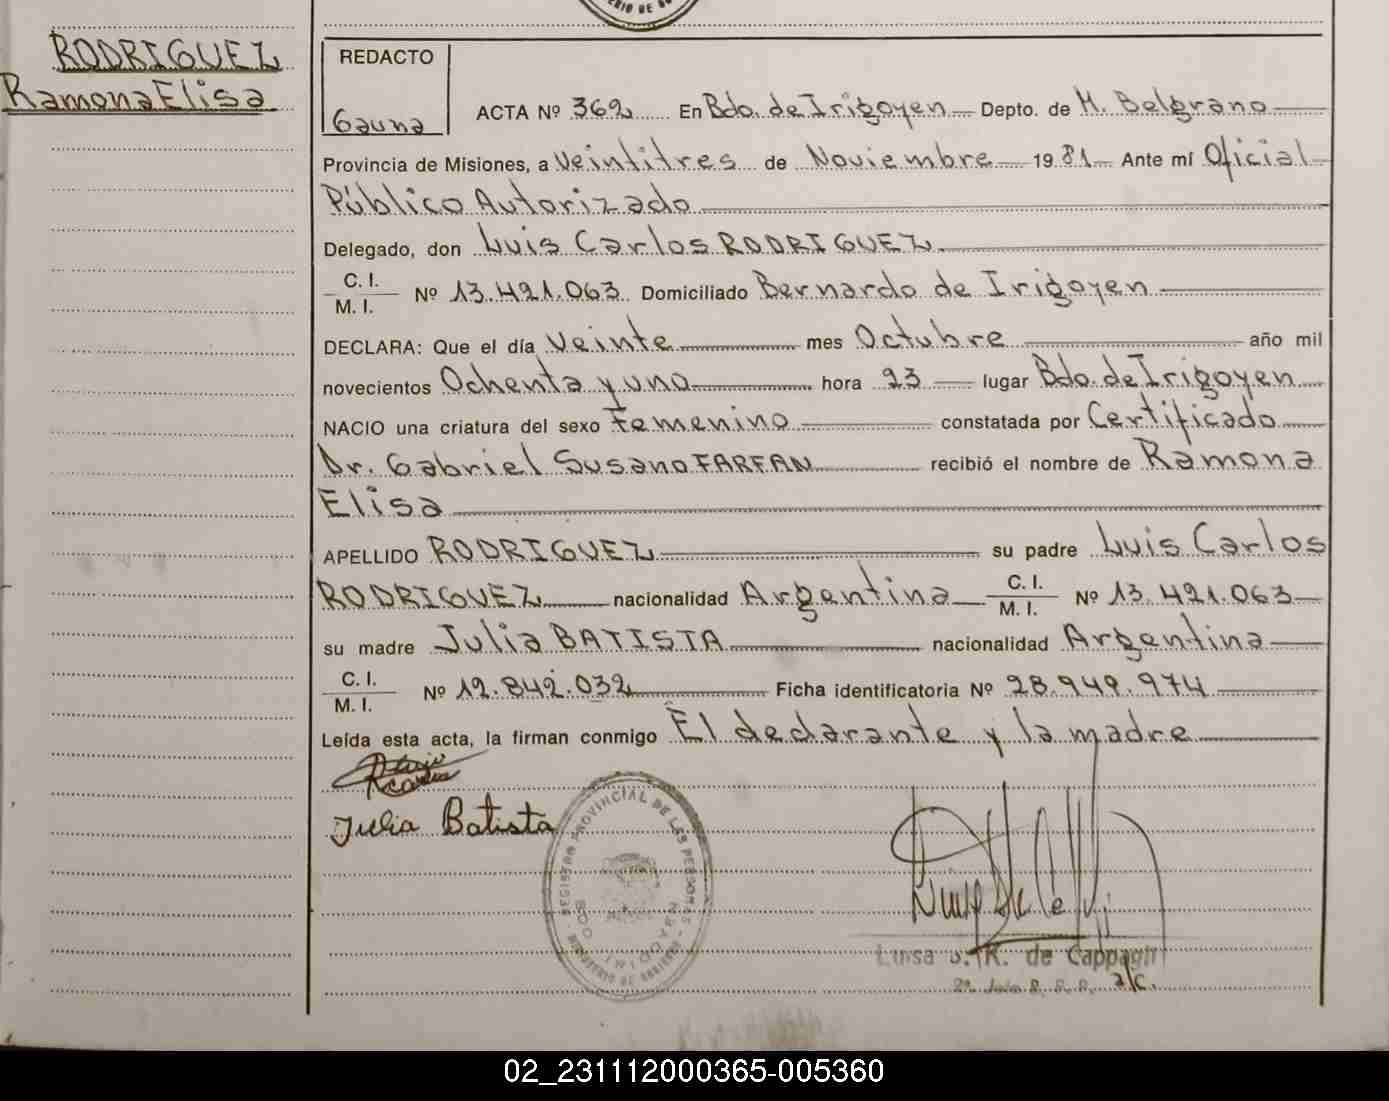 RODRIGUEZ
Ramona Elisa
REDACTO
Gauna
ACTA Nº 362 En Bdo. de Irigoyen Depto. de M. Belgrano
Provincia de Misiones, a Veintitres de Noviembre 19 81 Ante mí Oficial
Público Autorizado
Delegado, don Luis Carlos RODRIGUEZ
C. I.
M. I.
Nº 13.421.063 Domiciliado Bernardo de Irigoyen
DECLARA: Que el día Veinte mes Octubre año mil
novecientos Ochenta y uno hora 23 lugar Bdo. de Irigoyen
NACIO una criatura del sexo Femenino constatada por Certificado
Dr. Gabriel Susano FARFAN recibió el nombre de Ramona
Elisa
APELLIDO RODRIGUEZ su padre Luis Carlos
RODRIGUEZ nacionalidad Argentina C. I. M. I. Nº 13.421.063
su madre Julia BATISTA nacionalidad Argentina
C. I.
M. I.
Nº 12.842.032 Ficha identificatoria Nº 28.949.974
Leída esta acta, la firman conmigo El declarante y la madre
Julia Batista
REGISTRO PROVINCIAL DE LAS PERSONAS
de Cappagli
a/c.
02_231112000365-005360